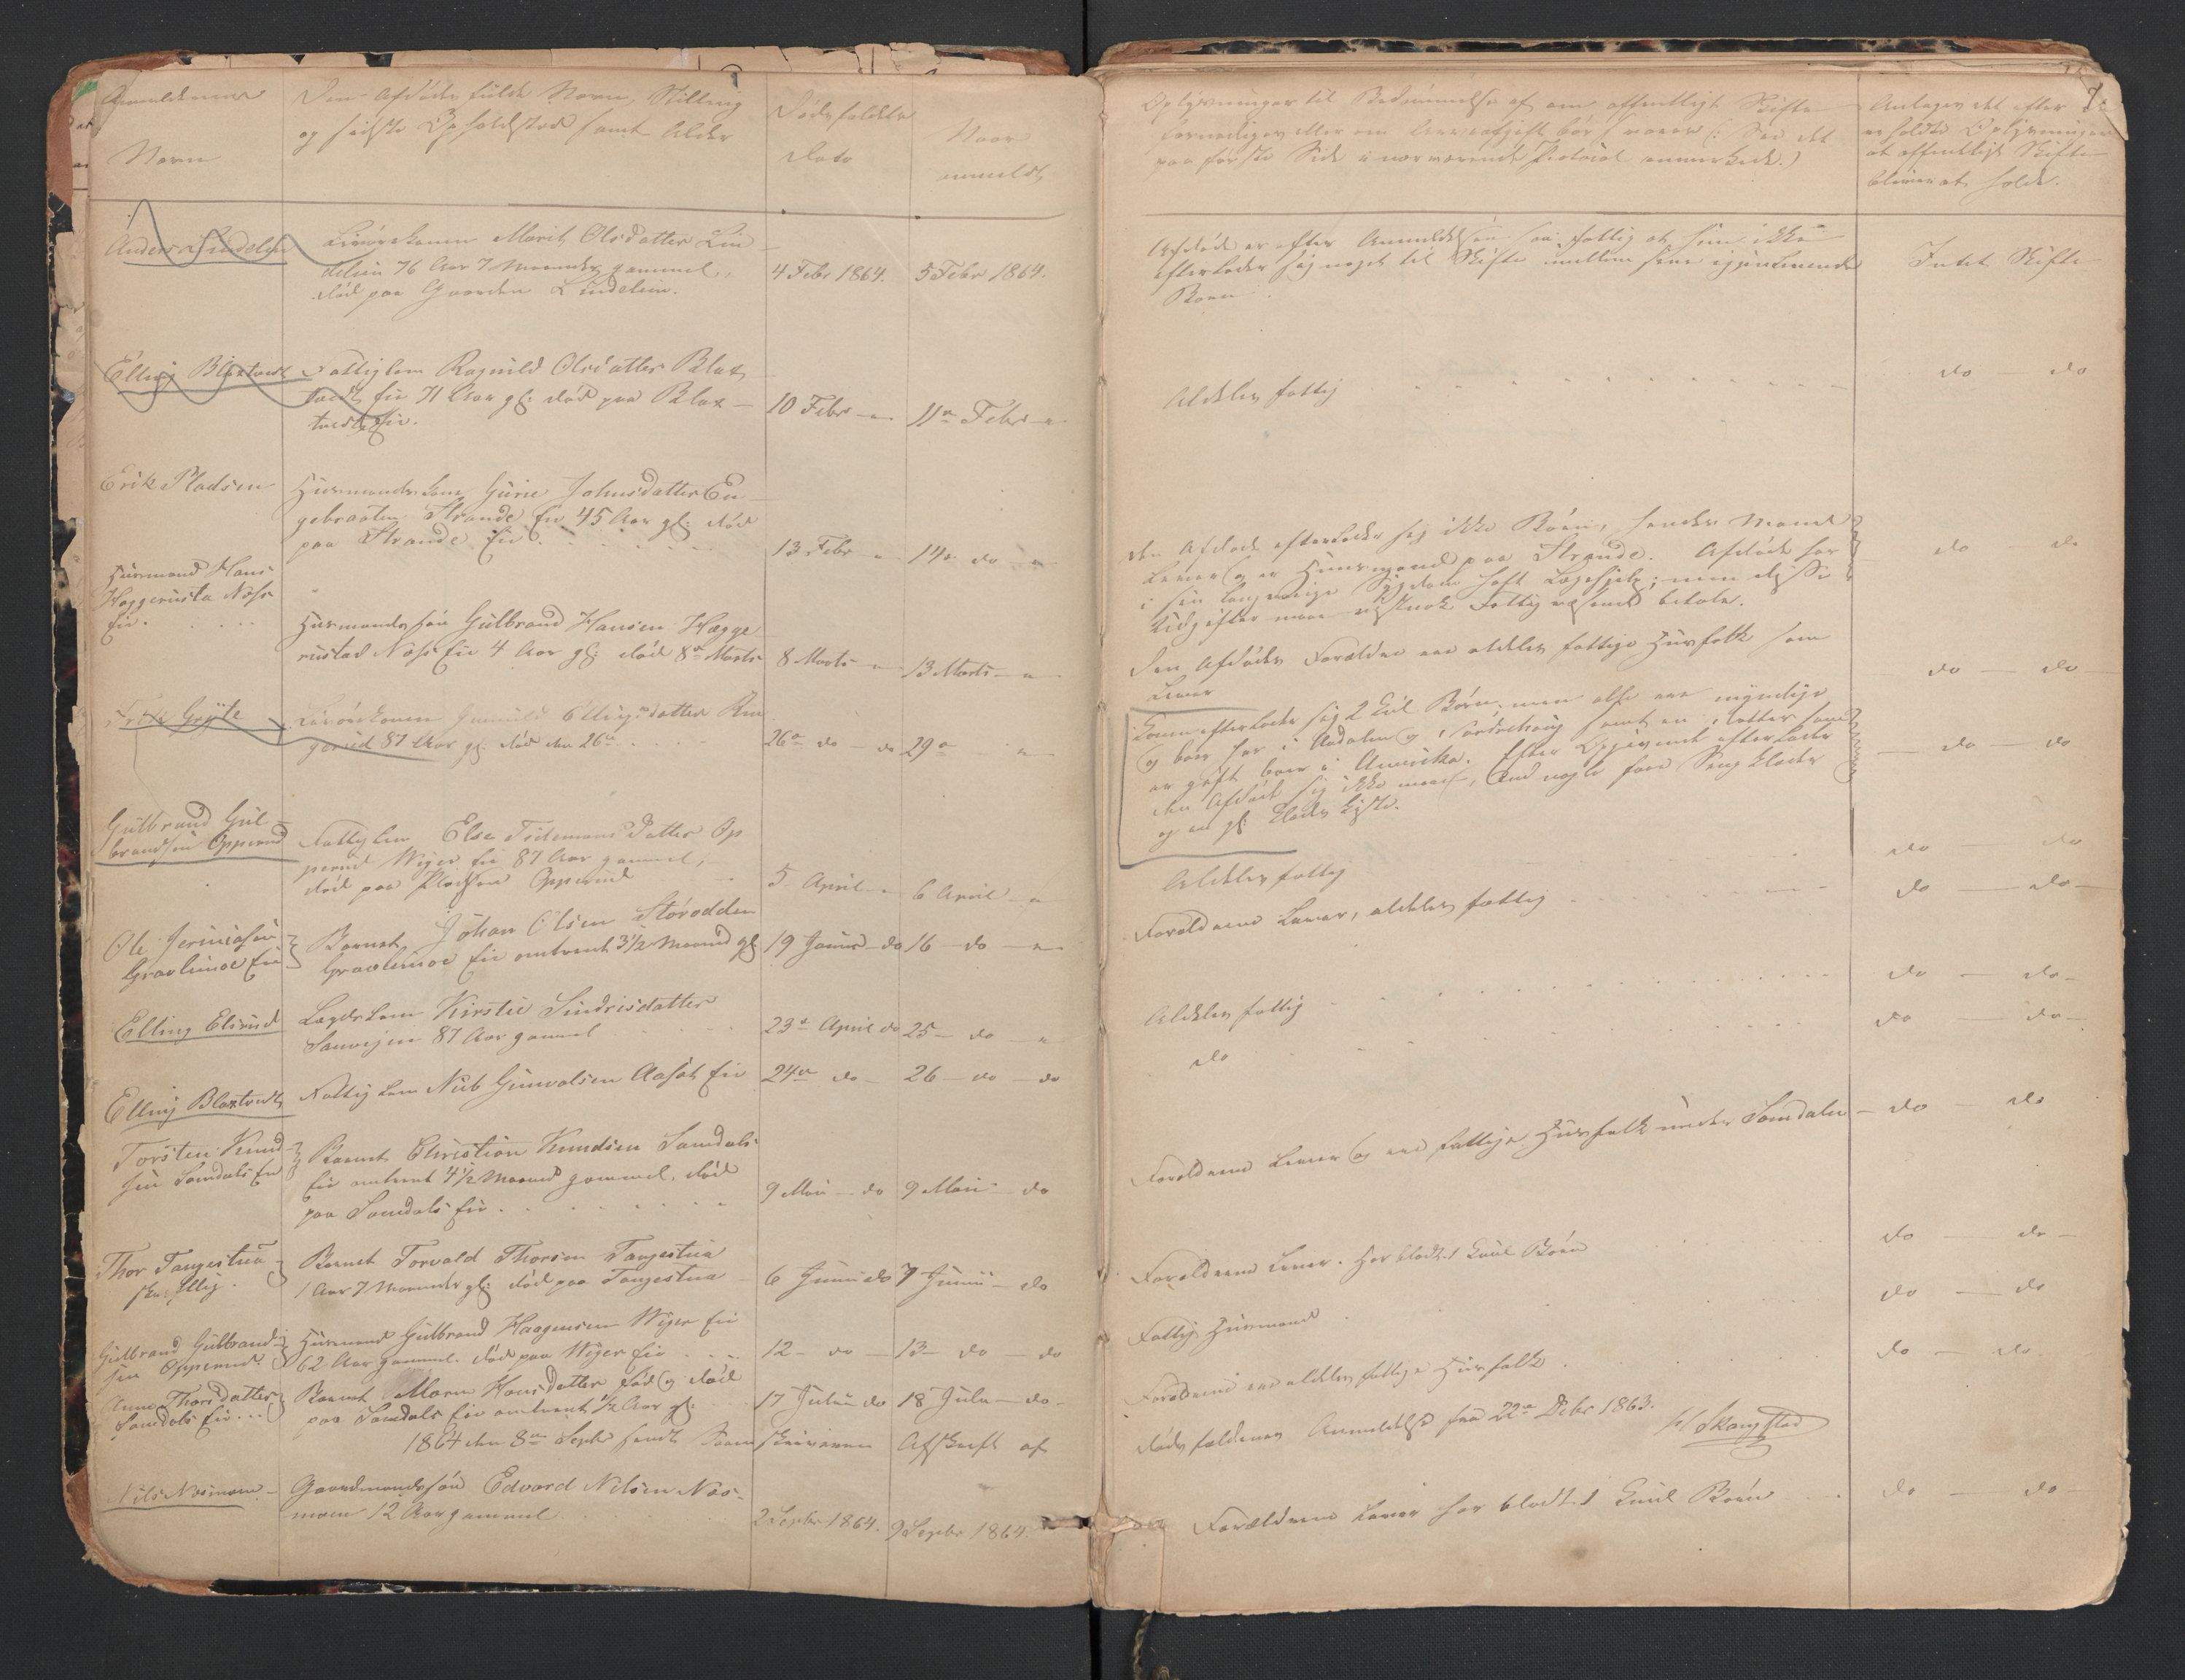 Anmelderens
Navn
Den Afdødes fulde Navn, Stilling
og sidste Opholdsted samt Alder
Dødsfaldets
Dato
Naar
anmeldt
Oplysninger til Bedømmelse af om offentligt Skifte
fornødiges eller om Arveafgift bør svares (: See det
paa første Side i nærværende Protocol anmærkede.)
Antages det efter de
at offentligt Skifte
bliver at holde.
Anders Lindelien
Livørekonen Marit Olsdatter Lin
delien 76 Aar 7 Maaneder gammel,
død paa Gaarden Lindelien.
4 Febr 1864.
5 Febr 1864.
Afdøde er efter Anmeldelsen saa fattig at hun ikke
efterlader sig noget til Skifte mellem sine igjenlevende
Børn
Intet Skifte
Elling Blaxtvedt
Fattiglem Ragnild Olsdatter Blax
tvedt Eie 71 Aar gl: død paa Blax-
tvedt Eie.
10 Febr - "
11te Febr - "
Aldeles fattig
do - do
Erik Pladsen
Husmandskone Gurie Johnsdatter En
gebraaten Strande Eie 45 Aar gl: død
paa Strande Eie
13 Febr "
14de do "
den Afdøde efterlader sig ikke Børn, hendes Mand
Lever og er Huusmand paa Strande. Afdøde har
i sin langvarige Sygdom haft Lægehjelp; men disse
Udgifter maa vistnok Fattigvæsenet betale.
do - do
Husmand Hans
Haggerusta Næss
Eie.
Husmandssøn Gulbrand Hansen Hægge
rustad Næss Eie 4 Aar gl: død 8de Marts
8 Marts "
13 Marts - "
Den Afdødes Forældre ere aldeles fattige Husfolk som
Lever
do - do
Gryte
Livørekonen Gunnild Ellingsdatter
87 Aar gl: død den 26de
26de do - do
29de "
Konen efterlader sig 2 Kul Børn, men alle ere myndige
og boer her i Aadalen og samt en Datter som
er gift boer i Amerika. Efter Opgivende efterlader
den Afdøde sig ikke mere, end nogle faae Sengklæder
og en gl: Klæde Kiste.
do - do
Gulbrand Gul-
brandsen Opperud
Fattiglem Else Tidemansdatter Op
perud Wiger Eie 87 Aar gammel,
død paa Pladsen Opperud
5 April "
6 April "
Aldeles fattig
do - do
Ole Jeremiasen
Gravlimoe Eie
Barnet Johan Olsen Storodden
Gravlimoe Eie omtrent 3½ Maaned gl
19 do
16 - do - "
Forældrene Lever, aldeles fattig
do - do
Elling Elsrud
Lægdslem Kirstie Sindrisdatter
87 Aar gammel
23de April do
25 - do "
Aldeles fattig
do - do
Elling Blaxtvedt
Fattiglem Nub Gunvalsen Aasæt Eie
24de do
26 - do - do
do
do - do
Torsten Knud
sen Samdals Eie
Barnet Christian Knudsen Samdals
Eie omtrent 4½ Maaned gammel, død
paa Samdals Eie
9 Mai - do
9 Mai - do
Forældrene Lever og ere fattige Husfolk under Samdalen
do - do
Thor Tangestua
Barnet Torvald Thorsen Tangestua
1 Aar 7 Maaneder gl: død paa Tangestua
6 Juni do
7 Juni - do
Forældrene Lever. Har bladt 1 Kuul Børn
do - do
Gulbrand Gulbrand
sen Opperud
Husmand Gulbrand Haagensen Wiger Eie
62 Aar gammel. død paa Wiger Eie
12 - do
13 - do - do
Fattig Husmand
do - do
Anne Thorsdatter
Samdals Eie
Barnet Maren Hansdatter død
paa Samdals Eie omtrent ½ Aar gl:
17 Juli do
18 Juli - do
Forældrene ere aldeles fattige Husfolk
do - do
1864 den 8de Septbr sendt Sorenskriveren Afskrift af
Dødsfaldenes Anmeldelse fra 22de Debr 1863.
Skaugstad
Nils Næsmoen
Gaardmandssøn Edvard Nilsen Næs-
moen 12 Aar gammel
2 Septbr 1864.
9 Septbr 1864.
Forældrene Lever har bladt 1 Kuul Børn
do - do